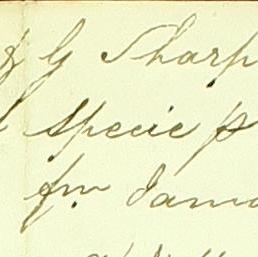 & G Sharp
Specie p
fm Jama